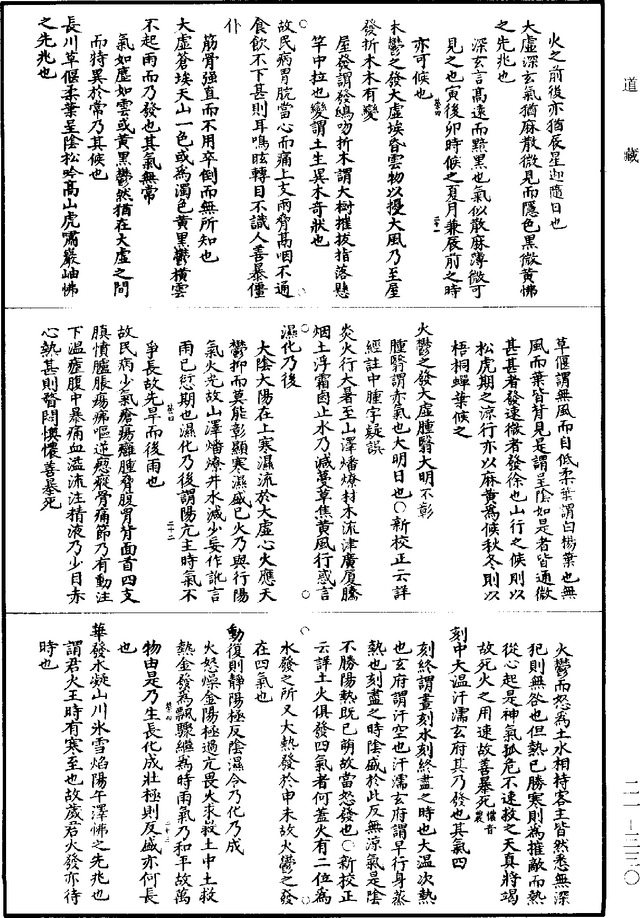 道藏
火之前後亦猶辰星迎隨日也
大虛深玄氣猶麻散微見而隱色黑微黃怫
之先兆也
深玄言高遠而黯黑也氣似散麻薄微可
見之也寅後卯時候之夏月兼辰前之時
亦可候也
木鬱之發大虛埃昏雲物以擾大風乃至屋
發折木木有變
屋發謂發鴟吻折木謂大樹摧拔指落懸
竿中拉也變謂土生異木奇狀也
故民病胃脘當心而痛上支兩脅鬲咽不通
食飲不下甚則耳鳴眩轉目不識人善暴僵
仆
筋骨強直而不用卒倒而無所知也
大虛蒼埃天山一色或為濁色黃黑鬱橫雲
不起雨而乃發也其氣無常
氣如塵如雲或黃黑鬱然猶在大虛之間
而特異於常乃其候也
長川草偃柔葉呈陰松吟高山虎嘯巖岫怫
之先兆也
草偃謂無風而自低柔葉謂白楊葉也無
風而葉皆背見是謂呈陰如是者皆通微
甚甚者發速微者發徐也山行之候則以
松虎期之涼行亦以麻黃為候秋冬則以
梧桐蟬葉候之
火鬱之發大虛腫翳大明不彰
腫翳謂赤氣也大明日也○新校正云詳
經註中腫字疑誤
炎火行大暑至山澤燔燎材木流津廣廈騰
烟土浮霜鹵止水乃減蔓草焦黃風行惑言
濕化乃後
大陰大陽在上寒濕流於大虛心火應天
鬱抑而莫能彰顯寒濕盛已火乃與行陽
氣火光故山澤燔燎井水減少妄作訛言
雨已愆期也濕化乃後謂陽亢主時氣不
爭長故先旱而後雨也
故民病少氣瘡瘍癰腫脅腹胃背面首四支
䐜憤臚脹瘍疿嘔逆瘛瘲骨痛節乃有動注
下溫瘧腹中暴痛血溢流注精液乃少目赤
心熱甚則瞀悶懊憹善暴死
火鬱而怒為土水相持客主皆然悉無深
犯則無欲也但熱已勝寒則為摧敵而熱
從心起是神氣孤危不速救之天真將竭
故死火之用速故善暴死
刻中大溫汗濡玄府其乃發也其氣四
刻終謂晝刻水刻終盡之時也大溫次熱
也玄府謂汗空也汗濡玄府謂早行身蒸
熱也刻盡之時陰盛於此反無涼氣是陰
不勝陽熱既已萌故當怒發也○新校正
云詳土火俱發四氣者何蓋火有二位為
水發之所又大熱發於申未故火鬱之發
在四氣也
動復則靜陽極反陰濕令乃化乃成
火怒爍金陽極過亢畏火求救土中土救
熱金發為飄驟繼為時雨氣乃和平故萬
物由是乃生長化成壯極則反盛亦何長
也
華發水凝山川冰雪焰陽午澤怫之先兆也
謂君火王時有寒至也故歲君火發亦待
時也
二一—三三〇